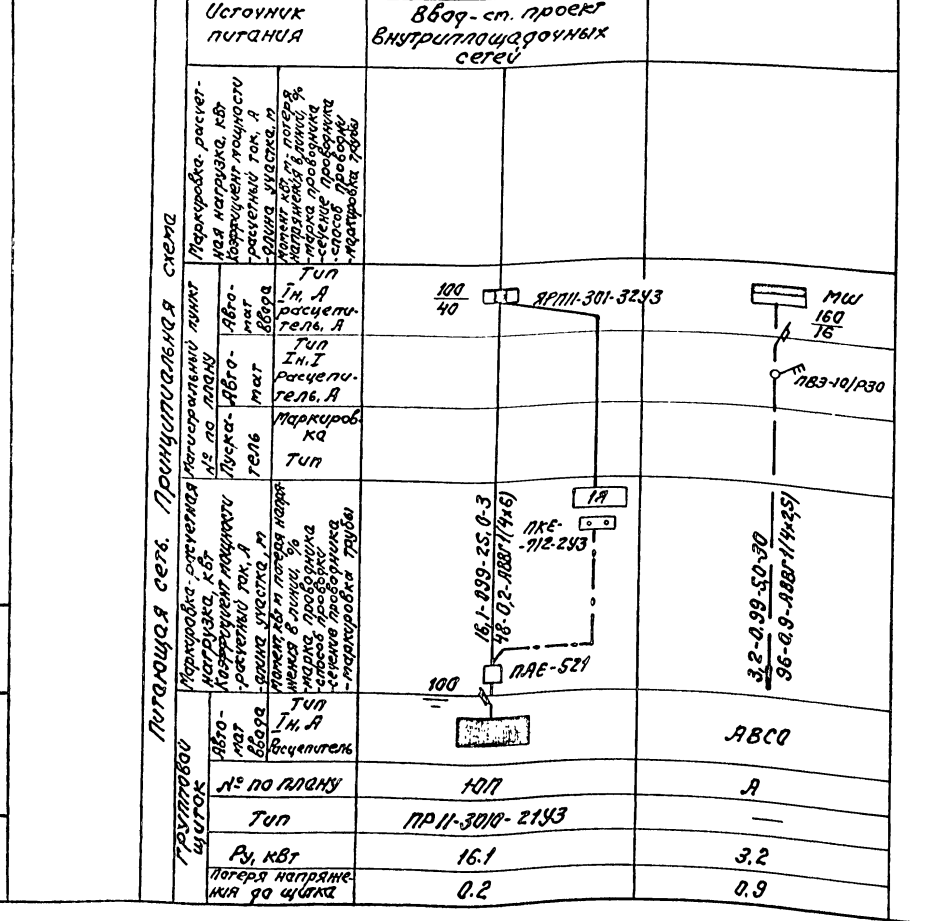 Источник
питания
Ввод-ст. проект
внутриплощадочных
сетей
Питающая сеть. Принципиальная схема
Маркировка-расчет-
ная нагрузка, кВт
Коэффициент мощности
-расчетный ток, А
-длина участка, м
Момент кВт.м-потеря
напряжения в линии, %
-марка проводника
-сечение проводника
-способ проводки
-маркировка трубы
Магистральный пункт
№ по плану
Авто-
мат
ввода
Тип
Iн, А
расцепи-
тель, А
Авто-
мат
Тип
Iн, I
Расцепи-
тель, А
Пуска-
тель
Маркиров-
ка
Тип
100
40
ЯРП11-301-32У3
МШ
160
16
ПВЭ-10/Р30
1Я
ПКЕ-
-712-2У3
Маркировка-расчетная
нагрузка, кВт
Коэффициент мощности
-расчетный ток, А
-длина участка, м
Момент, кВт м потеря напря-
жения в линии, %
-марка проводника
-способ проводки
сечение проводника
-маркировка трубы
16,1-099-25,0-3
48-0,2-АВВГ1(4х6)
3,2-0.99-5,0-30
96-0.9-АВВГ1(4х2,5)
ПАЕ-521
100
Групповой
щиток
Авто-
мат
ввода
Тип
Iн, А
Расцепитель
АВСО
№ по плану
1ОП
А
Тип
ПР11-3010-21У3
—
Ру, кВт
16.1
3.2
Потеря напряже-
ния до щитка
0.2
0.9